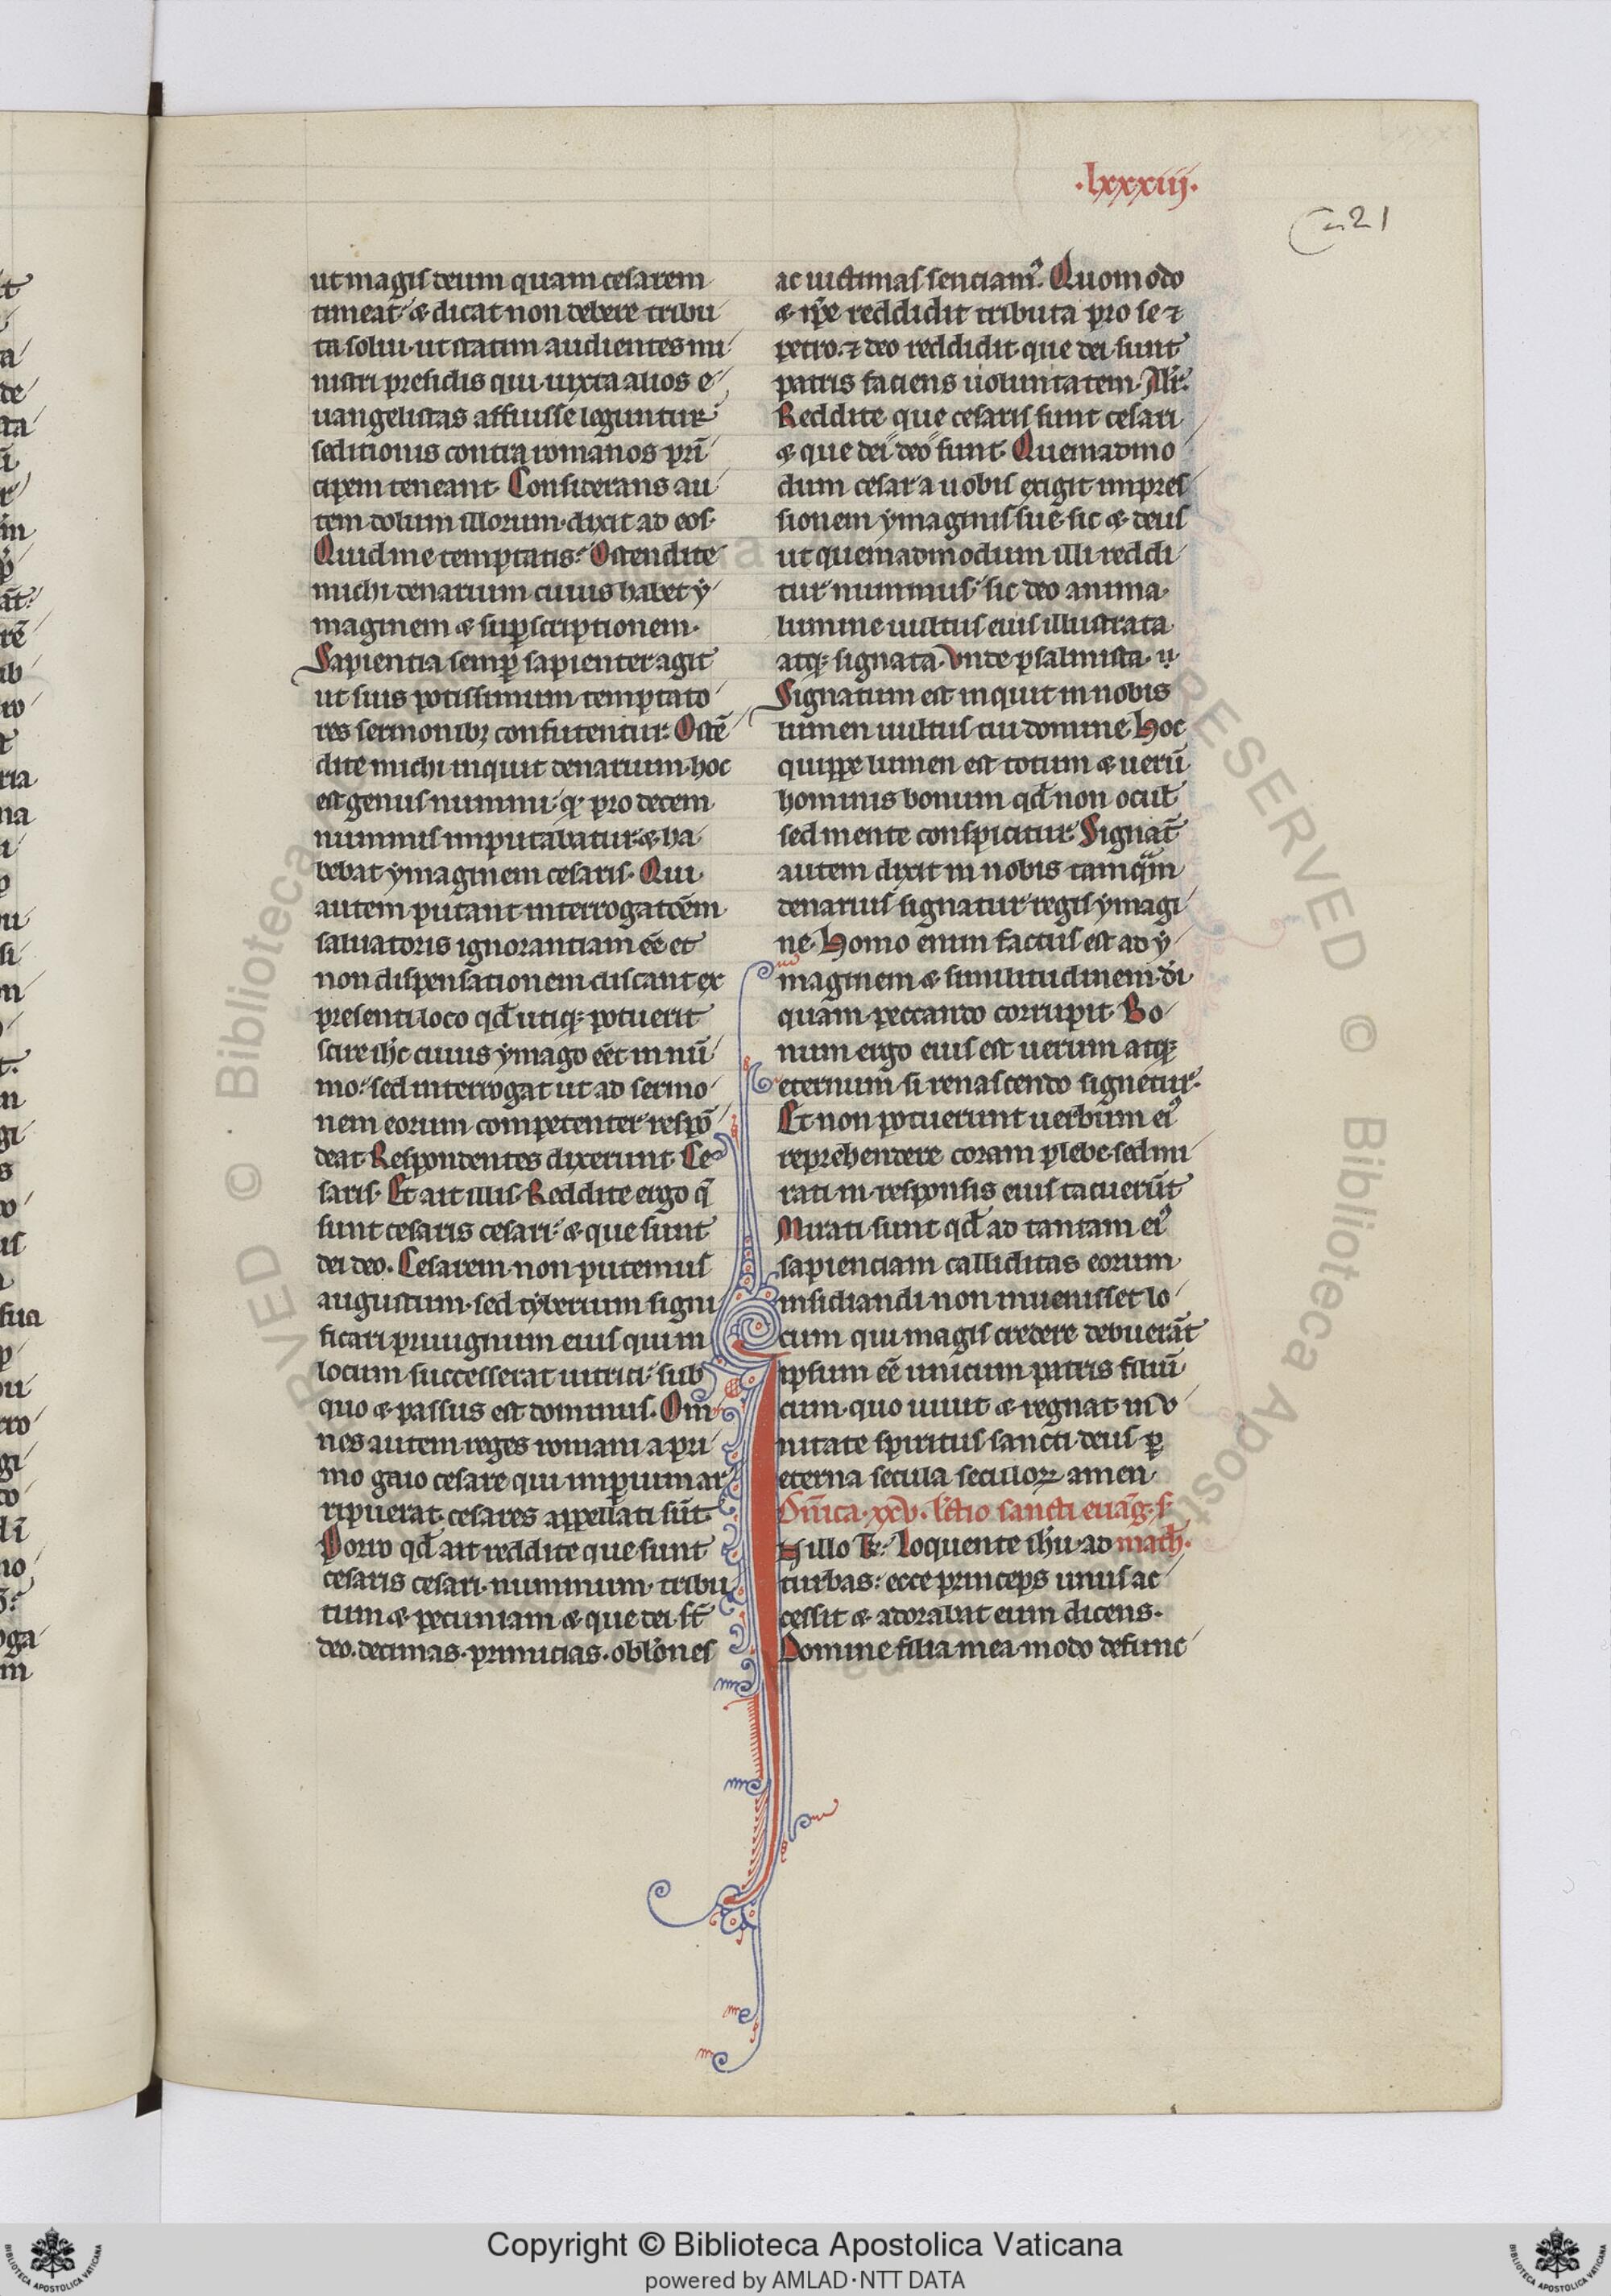 .lxxxiij.
ut magis deum quam cesarem
timeat. & dicat non debere tribu
ta solui. ut statim audientes mi
nistri presidis qui iuxta alios e
uangelistas affuisse leguntur
seditionis contra romanos prī
cipem teneant. Considerans au
tem dolum illorum. dixit ad eos.
Quid me temptatis? Ostendite
michi denarium cuius habet y
maginem & suꝑscriptionem.
Sapientia semꝑ sapienter agit
ut suis potissimum temptato
res sermonibꝫ confutentur. Ostē
dite michi inquit denarium. hoc
est genus nummi. q̇ pro decem
nummis imputabatur. & ha
bebat ymaginem cesaris. Qui
autem putant interrogatōem
saluatoris ignorantiam eē et
non dispensationem discant ex
presenti loco qđ utiqꝫ potuerit
scire ihc̄ cuius ymago eēt in nū
mo. sed interrogat ut ad sermo
nem eorum competenter respō
deat. Respondentes dixerunt. Ce
saris. Et ait illis. Reddite ergo q̄
sunt cesaris cesari. & que sunt
dei deo. Cesarem non putemus
augustum. sed tyberium signi
ficari priuignum eius qui in
locum successerat uitrici. sub
quo & passus est dominus. Om
nes autem reges romani a pri
mo gaio cesare qui imꝑium ar
ripuerat. cesares appellati sūt.
Porro qđ ait reddite que sunt
cesaris cesari. nummum. tribu
tum & pecuniam & que dei st̄
deo. decimas. primicias. obłones
ac uictimas senciam᾽. Quomodo
& ip̄e reddidit tributa pro se ⁊
petro. ⁊ deo reddidit que dei sunt
patris faciens uoluntatem. Alr̄.
Reddite que cesaris sunt cesari
& que dei deo sunt. Quemadmo
dum cesar a uobis exigit impres
sionem ymaginis sue. sic & deus
ut quemadmodum illi reddi
tur nummus. sic deo anima
lumine uultus eius illustrata
atqꝫ signata. Vnde psalmista.
Signatum est inquit in nobis
lumen uultus tui domine. Hoc
quippe lumen est totum & uerū
hominis bonum qđ non ocul̄
sed mente conspicitur. Signat̄
autem dixit in nobis tamqᵃm
denarius signatur regis ymagi
ne. Homo enim factus est ad y
maginem & similitudinem dī
quam peccando corrupit. Bo
num ergo eius est uerum atqꝫ
eternum si renascendo signetur.
Et non potuerunt uerbum ei᾽
reprehendere coram plebe. sed mi
rati in responsis eius tacuerūt
Mirati sunt qđ ad tantam ei᾽
sapienciam calliditas eorum
insidiandi non inuenisset lo
cum qui magis credere debuerāt
ipsum eē unicum patris filiū
cum quo uiuit & regnat in v
nitate spiritus sancti deus ꝑ
eterna secula seculoꝝ amen.
Dn̄ica .xxv. lc̄tio sancti euāg. s.
N illo tꝑ. Loquente ihu. ad math̄.
turbas. ecce princeps unus ac
cessit & adorabat eum dicens.
Domine filia mea modo defunc
Copyright © Biblioteca Apostolica Vaticana
powered by AMLAD·NTT DATA